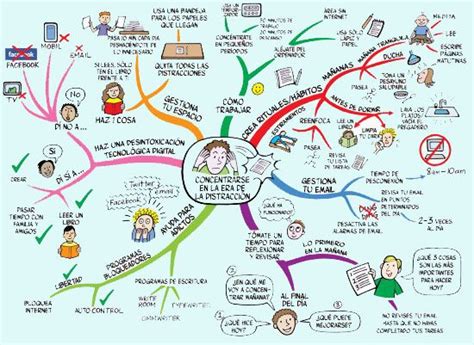 CONCENTRARSE
EN LA ERA DE
LA DISTRACCIÓN
CÓMO
TRABAJAR
CONCENTRATE
EN PEQUEÑOS
PERIODOS
ALÉJATE DEL
ORDENADOR
ÁREA SIN
INTERNET
USA SÓLO
LÁPIZ Y
PAPEL
CREA RITUALES/HÁBITOS
ESTIRAMIENTOS
MAÑANAS
MAÑANA TRANQUILA
MEDITA
LEE
DUCHA
TOMA UN
DESAYUNO
SALUDABLE
ANTES DE DORMIR
LAVA LOS
PLATOS/
LIMPIA EL
FREGADERO
REENFOCA
LEE UN
LIBRO
LIMPIA
TU DÍA
PASEA
REVISA
TU LISTA
DE TAREAS
GESTIONA
TU EMAIL
TIEMPO DE
DESCONEXIÓN
8am-10am
REVISA TU EMAIL
EN PUNTOS
DETERMINADOS
DEL DÍA
2-3 VECES
AL DÍA
DESACTIVA LAS
ALARMAS DE EMAIL
TÓMATE UN
TIEMPO PARA
REFLEXIONAR
Y REVISAR
¿QUÉ HA
FUNCIONADO?
LO PRIMERO
EN LA MAÑANA
¿QUÉ 3 COSAS
SON LAS MÁS
IMPORTANTES
PARA HACER
HOY?
NO REVISES TU EMAIL
HASTA QUE NO HAYAS
COMPLETADO TUS TAREAS
¿EN QUÉ ME
VOY A CONCENTRAR
MAÑANA?
¿QUÉ HICE
HOY?
AL FINAL
DEL DÍA
¿QUÉ PUEDE
MEJORARSE?
AYUDA PARA
ADICTOS
Twitter
email
Facebook
PROGRAMAS
BLOQUEADORES
LIBERTAD
BLOQUEA
INTERNET
AUTO CONTROL
PROGRAMAS DE ESCRITURA
WRITE
ROOM
HAZ UNA DESINTOXICACIÓN
TECNOLÓGICA DIGITAL
DÍ NO A...
No
TV
FACEBOOK
facebook
MOBIL
EMAIL
DÍ SÍ A...
Sí
CREAR
PASAR
TIEMPO CON
FAMILIA Y
AMIGOS
LEER UN
LIBRO
GESTIONA
TU ESPACIO
HAZ 1 COSA
SI LEES, SÓLO
TEN EL LIBRO
FRENTE A TI
QUITA TODAS LAS
DISTRACCIONES
USA UNA BANDEJA
PARA LOS PAPELES
QUE LLEGAN